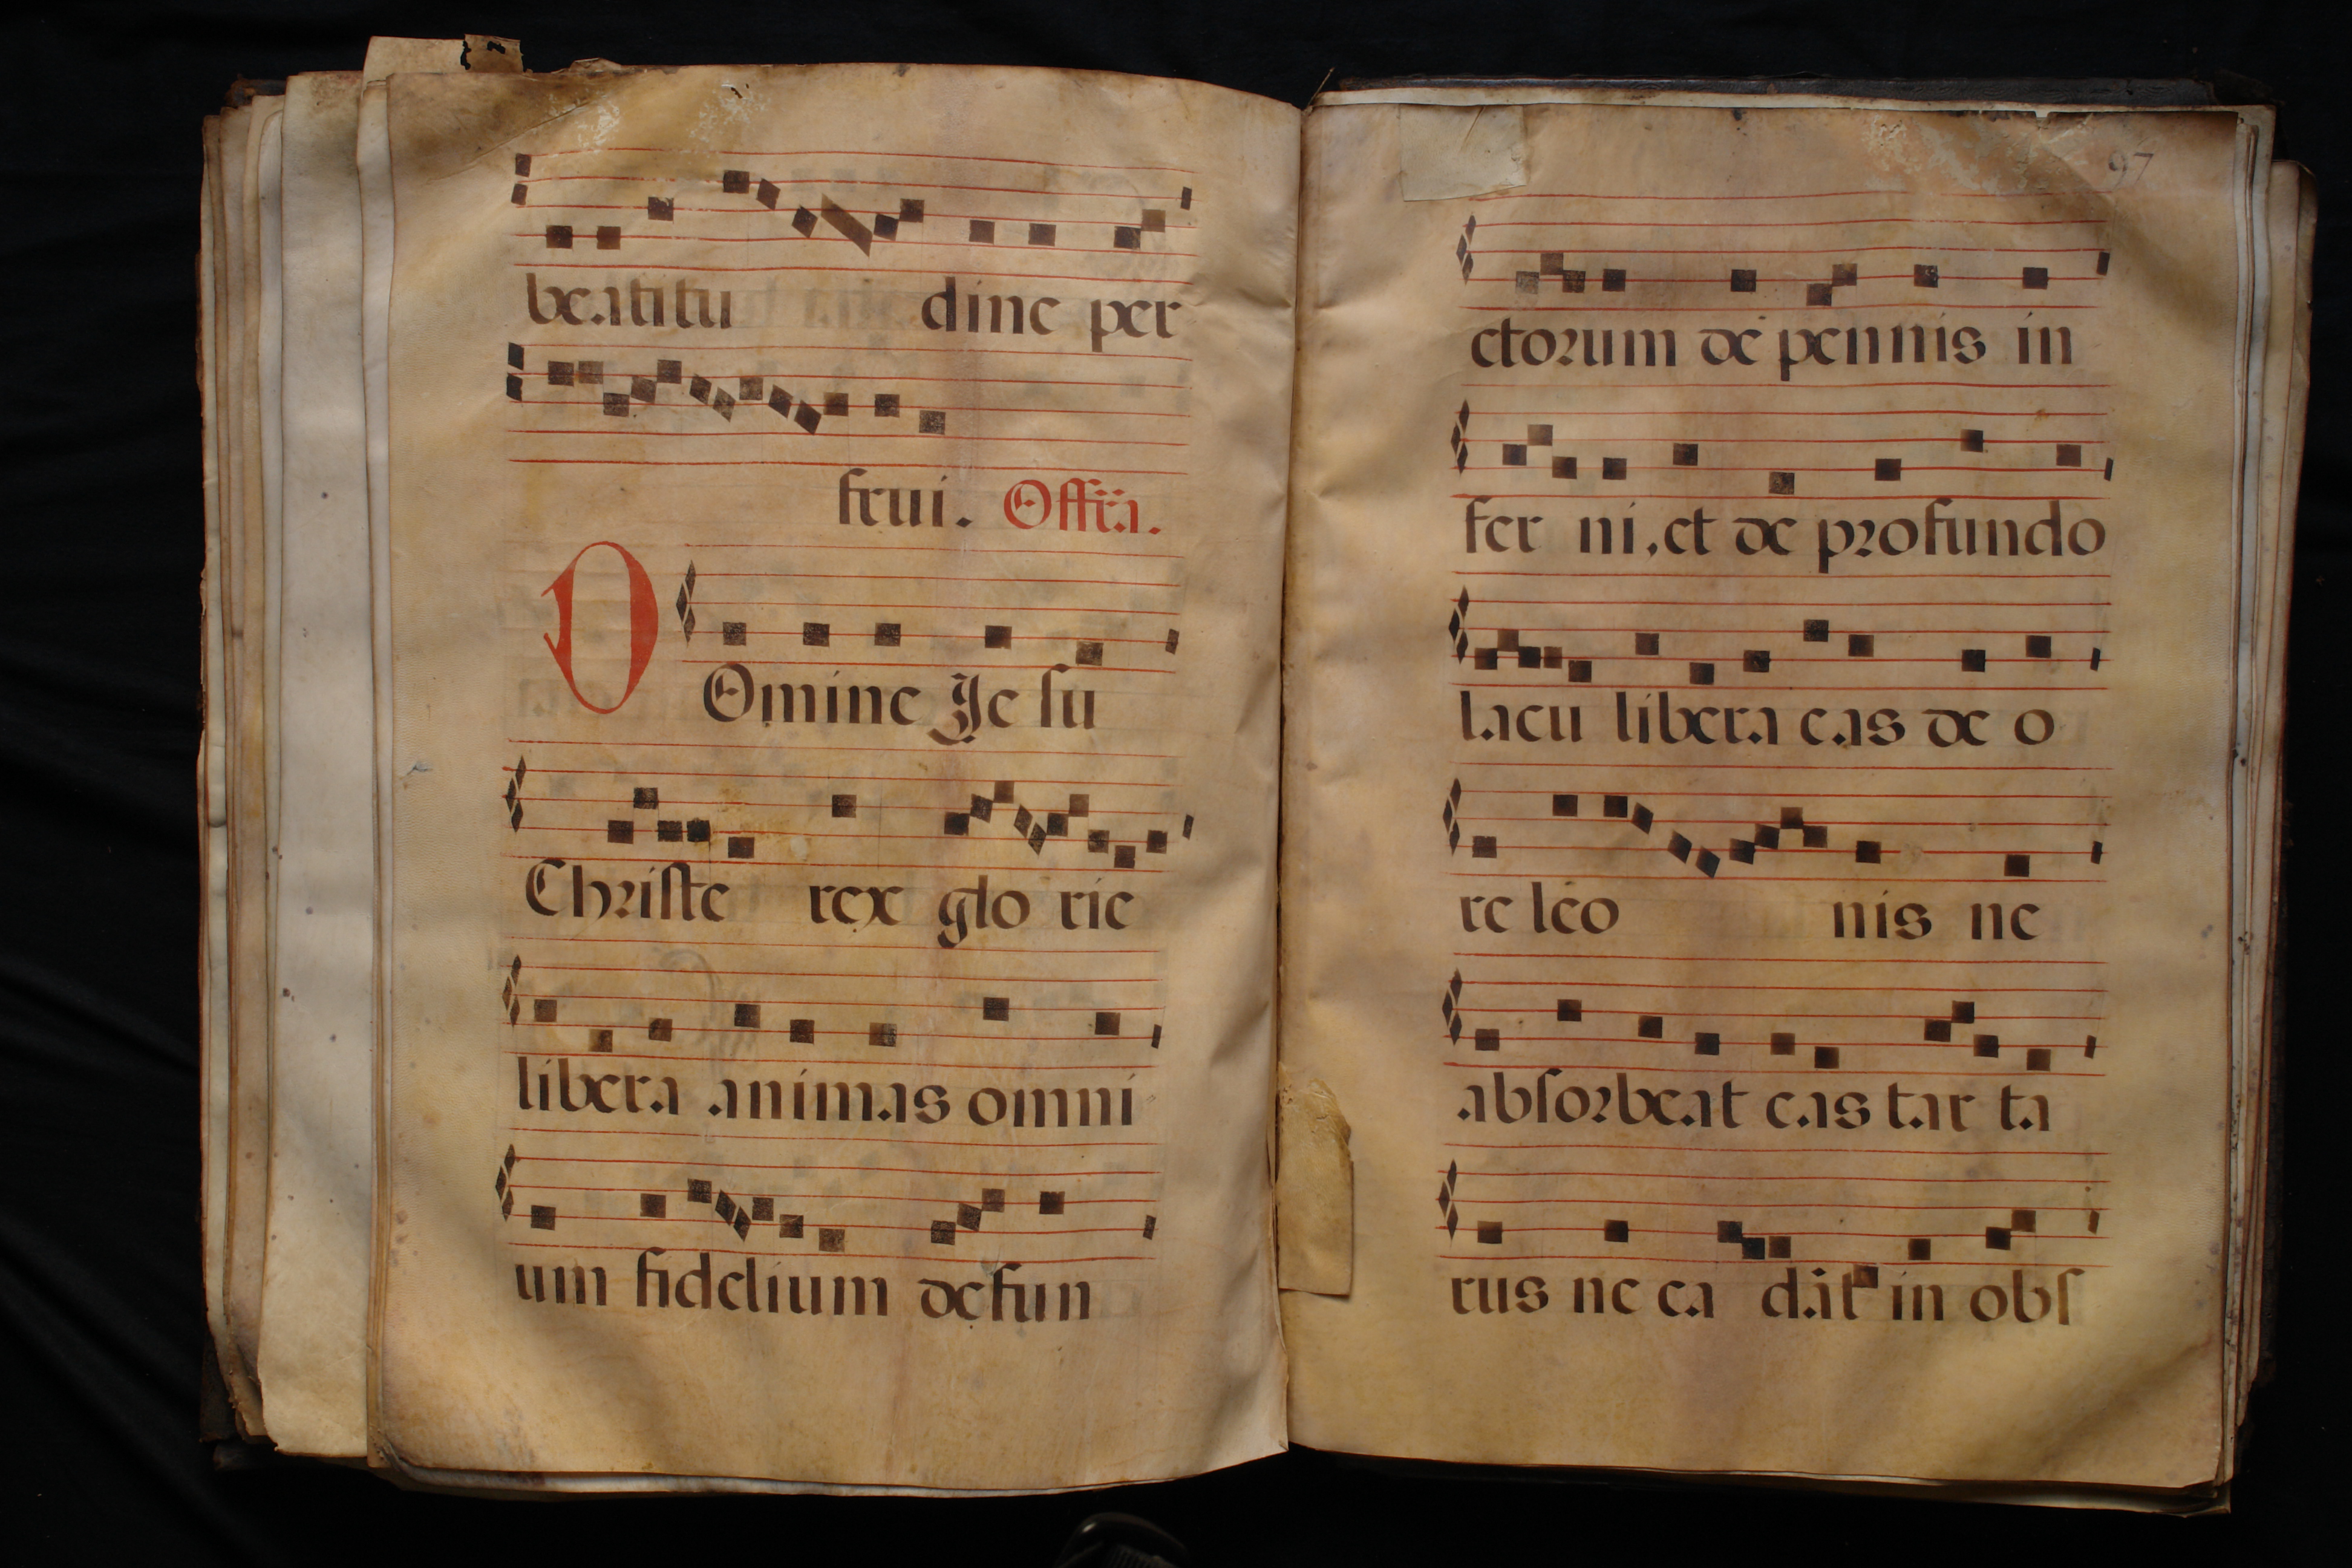 beatitu dine per
frui. Offr̃a.
D Omine Je ſu
Chriſte rex glo rie
libera animas omni
um fidelium defun
97
ctorum de pennis in
fer ni, et de profundo
lacu libera eas de o
re leo nis ne
abſorbeat eas tar ta
rus ne ca dãt in obſ